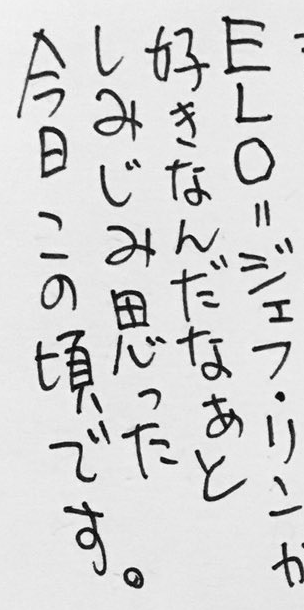 ELO=ジェフ・リンが
好きなんだなあと
しみじみ思った
今日この頃です。